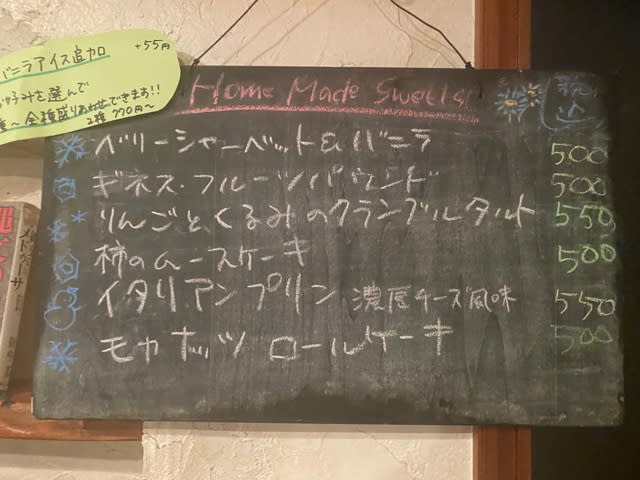 バニラアイス追加 +55円
お好みを選んで
全種盛りあわせできます!!
2種 770円~
Home Made Sweets
税込
ベリーシャーベット&バニラ 500
ギネス・フルーツパウンド 500
りんごとくるみのクランブルタルト 550
柿のムースケーキ 500
イタリアンプリン 濃厚チーズ風味 550
モカナッツロールケーキ 500